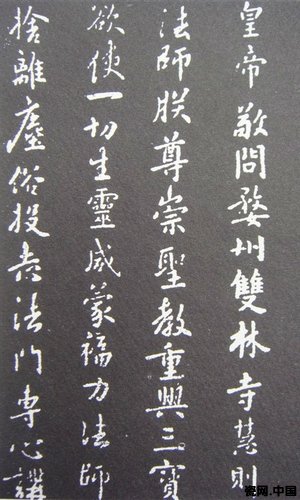 皇帝敬問婺州雙林寺慧則
法師朕尊崇聖教重興三寶
欲使一切生靈咸蒙福力法師
捨離塵俗投志法門專心講
瓷网.中国